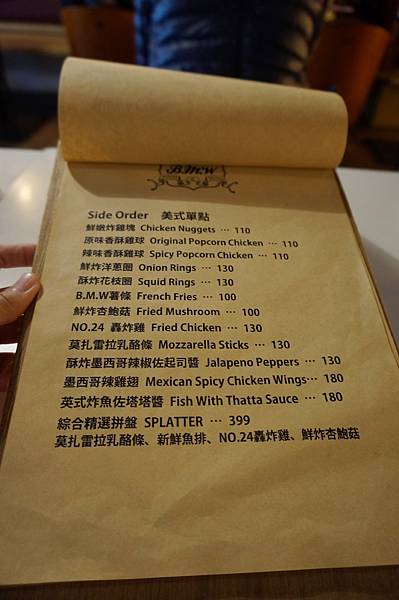 B.M.W
Side Order 美式單點
鮮嫩炸雞塊 Chicken Nuggets ⋯ 110
原味香酥雞球 Original Popcorn Chicken ⋯ 110
辣味香酥雞球 Spicy Popcorn Chicken ⋯ 110
鮮炸洋蔥圈 Onion Rings ⋯ 130
酥炸花枝圈 Squid Rings ⋯ 130
B.M.W薯條 French Fries ⋯ 100
鮮炸杏鮑菇 Fried Mushroom ⋯ 100
NO.24 轟炸雞 Fried Chicken ⋯ 130
莫扎雷拉乳酪條 Mozzarella Sticks ⋯ 130
酥炸墨西哥辣椒佐起司醬 Jalapeno Peppers ⋯ 130
墨西哥辣雞翅 Mexican Spicy Chicken Wings⋯ 180
英式炸魚佐塔塔醬 Fish With Thatta Sauce ⋯ 180
綜合精選拼盤 SPLATTER ⋯ 399
莫扎雷拉乳酪條、新鮮魚排、NO.24轟炸雞、鮮炸杏鮑菇